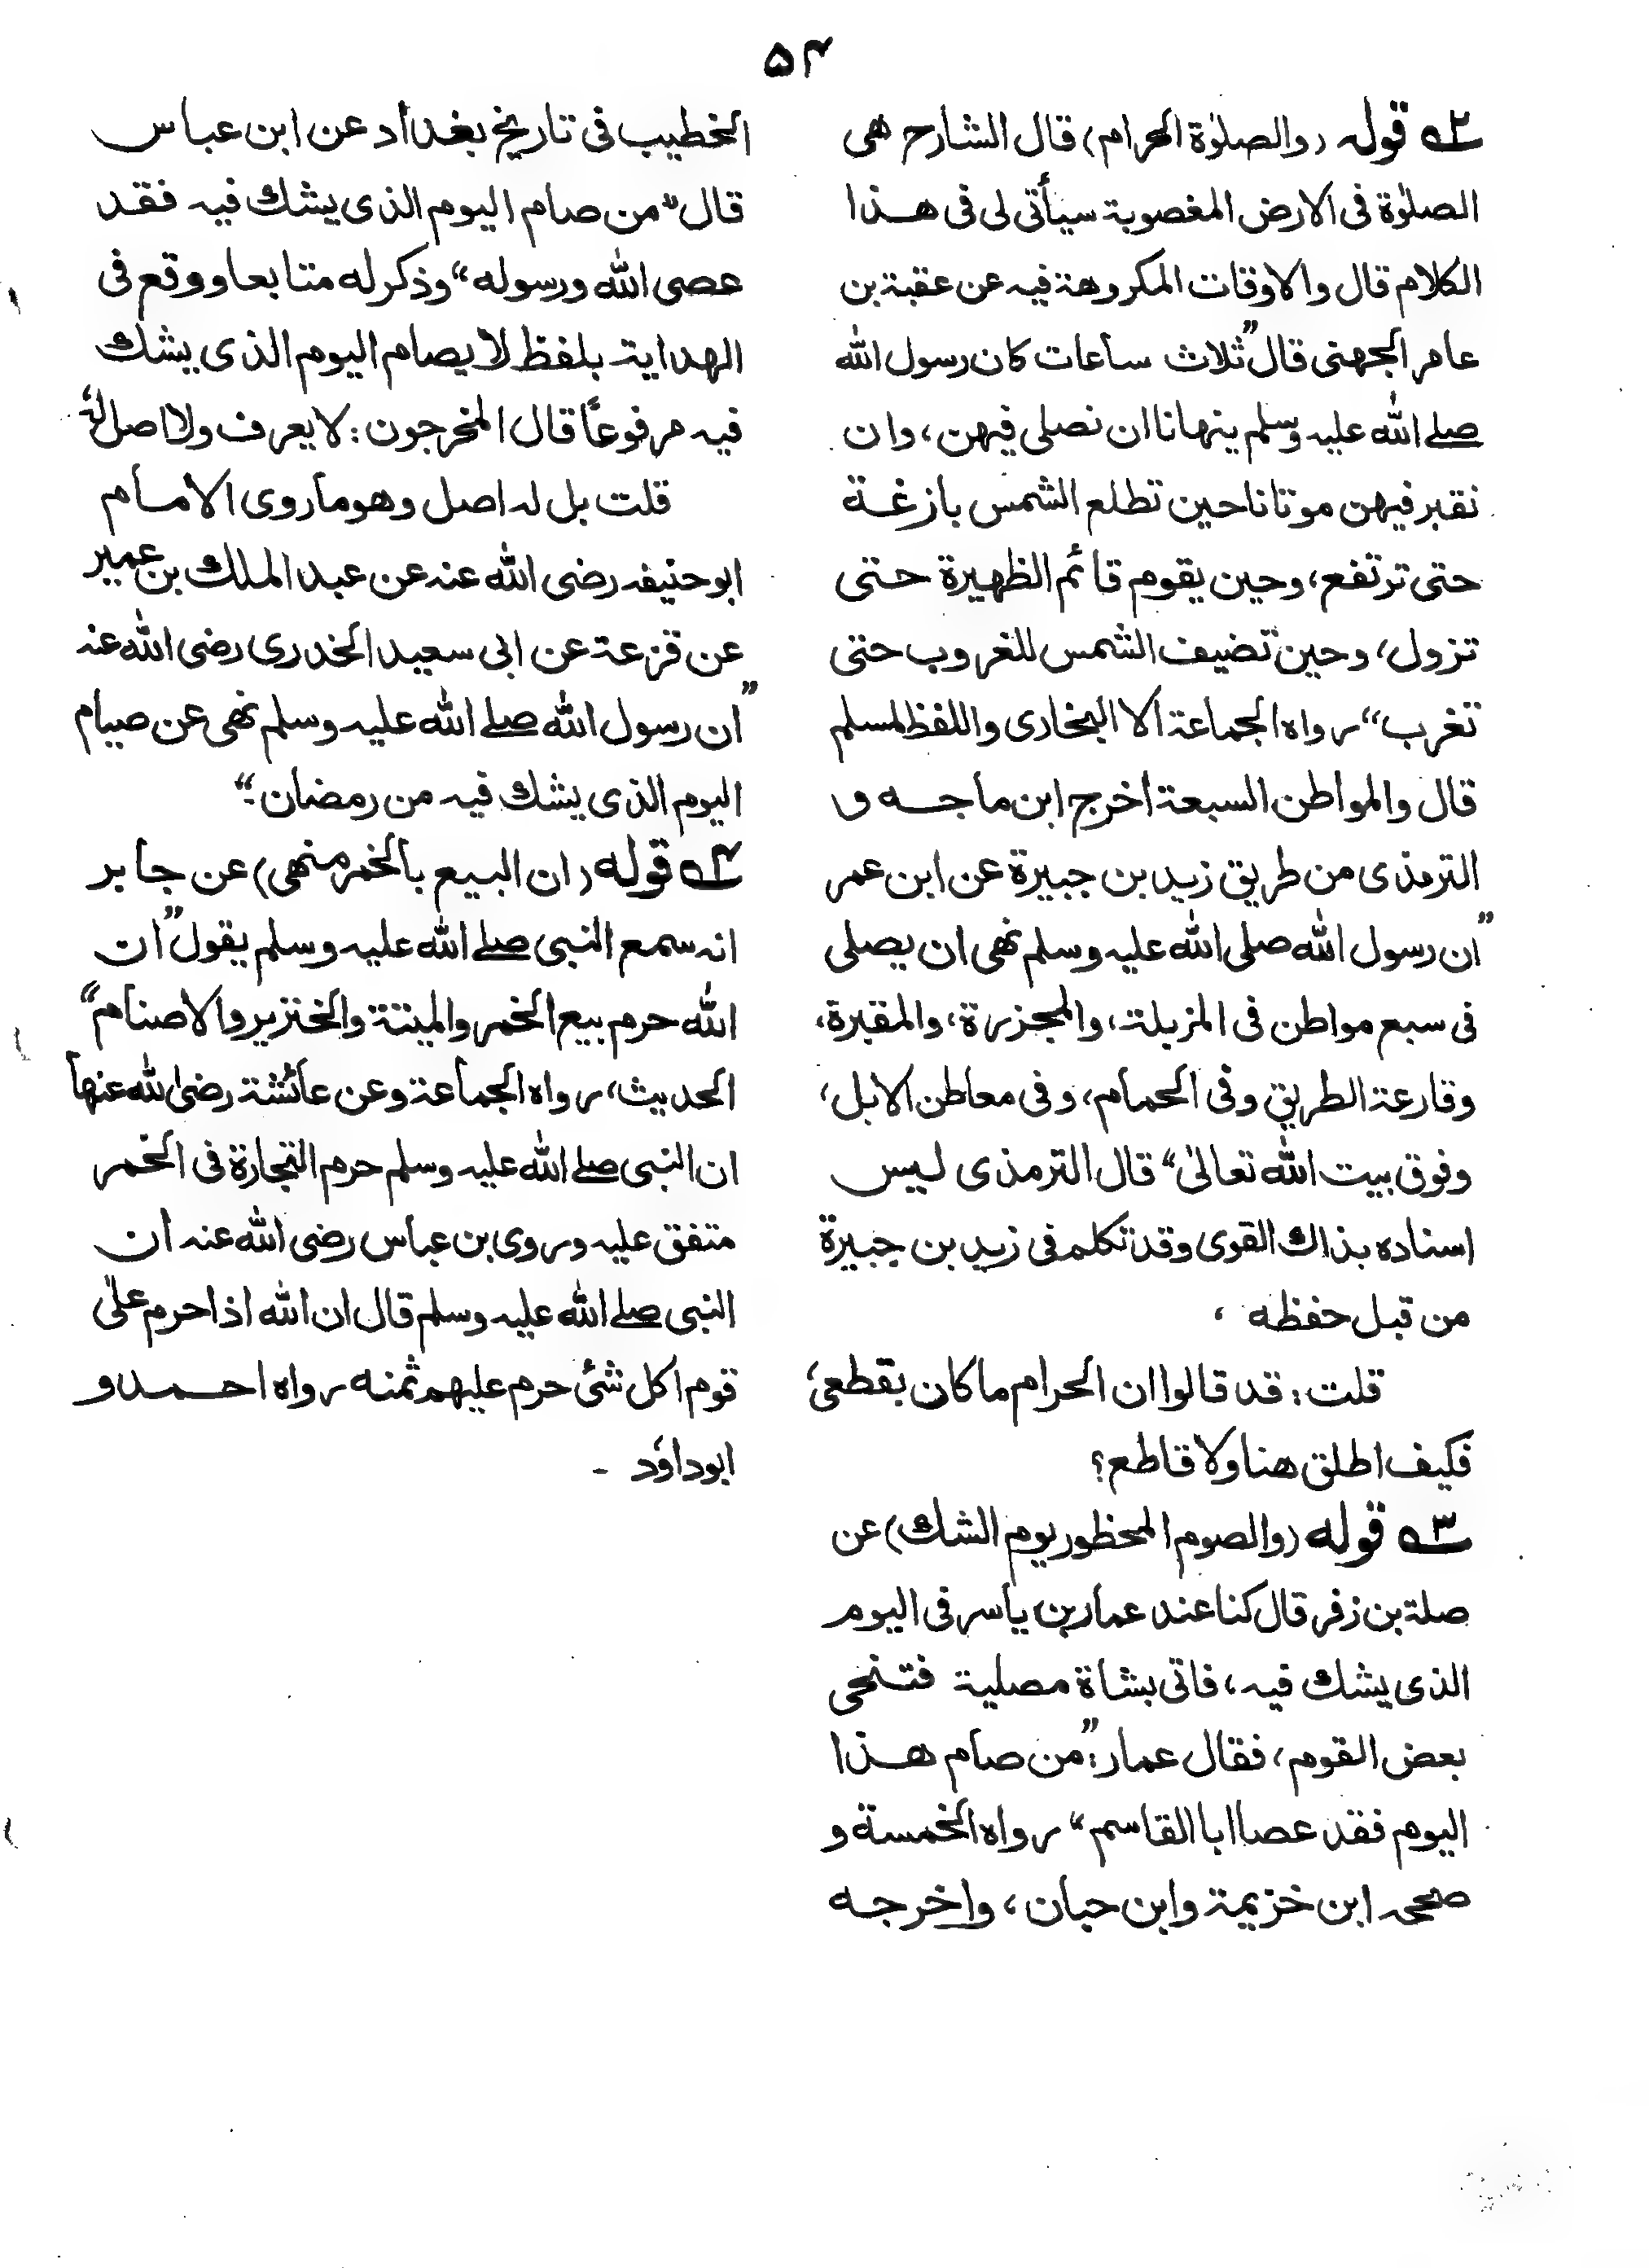 ۵۴
۲ قوله (والصلوٰة الحرام) قال الشارح هى
الصلوٰة فى الارض المغصوبة سيأتى لى فى هذا
الكلام قال والاوقات المكروهة فيه عن عقبة بن
عامر الجهنى قال ”ثلاث ساعات كان رسول الله
صلے الله عليه وسلم ينهانا ان نصلى فيهن، وان
نقبر فيهن موتانا حين تطلع الشمس بازغة
حتى ترتفع، وحين يقوم قائم الظهيرة حتى
تزول، وحين تضيف الشمس للغروب حتى
تغرب“ رواه الجماعة الا البخارى واللفظ لمسلم
قال والمواطن السبعة اخرج ابن ماجه و
الترمذى من طريق زيد بن جبيرة عن ابن عمر
”ان رسول الله صلى الله عليه وسلم نهى ان يصلى
فى سبع مواطن فى المزبلة، والمجزرة، والمقبرة،
وقارعة الطريق وفى الحمام، وفى معاطن الابل،
وفوق بيت الله تعالىٰ“ قال الترمذى ليس
اسناده بذاك القوى وقد تكلم فى زيد بن جبيرة
من قبل حفظه ،
قلت: قد قالوا ان الحرام ما كان بقطعى،
فكيف اطلق هنا ولا قاطع؟
۳ قوله (والصوم المحظور يوم الشك) عن
صلة بن زفر قال كنا عند عمار بن ياسر فى اليوم
الذى يشك فيه، فاتى بشاة مصلية فتنحى
بعض القوم، فقال عمار: ”من صام هذا
اليوم فقد عصا ابا القاسم“ رواه الخمسة و
صححه ابن خزيمة وابن حبان، واخرجه
الخطيب فى تاريخ بغداد عن ابن عباس
قال ”من صام اليوم الذى يشك فيه فقد
عصى الله ورسوله“ وذكر له متابعا ووقع فى
الهداية بلفظ لا يصام اليوم الذى يشك
فيه مرفوعًا قال المخرجون: لا يعرف ولا اصل له،
قلت بل له اصل وهو ما روى الامام
ابو حنيفه رضى الله عنه عن عبد الملك بن عمير
عن قزعة عن ابى سعيد الخدرى رضى الله عنه
”ان رسول الله صلے الله عليه وسلم نهى عن صيام
اليوم الذى يشك فيه من رمضان-“
۴ قوله (ان البيع بالخمر منهى) عن جابر
انه سمع النبى صلے الله عليه وسلم يقول ”ان
الله حرم بيع الخمر والميتة والخنزير والاصنام“
الحديث، رواه الجماعة وعن عائشة رضى الله عنها
ان النبى صلے الله عليه وسلم حرم التجارة فى الخمر
متفق عليه وروى بن عباس رضى الله عنه ان
النبى صلے الله عليه وسلم قال ان الله اذا حرم علىٰ
قوم اكل شئ حرم عليهم ثمنه رواه احمد و
ابوداؤد -